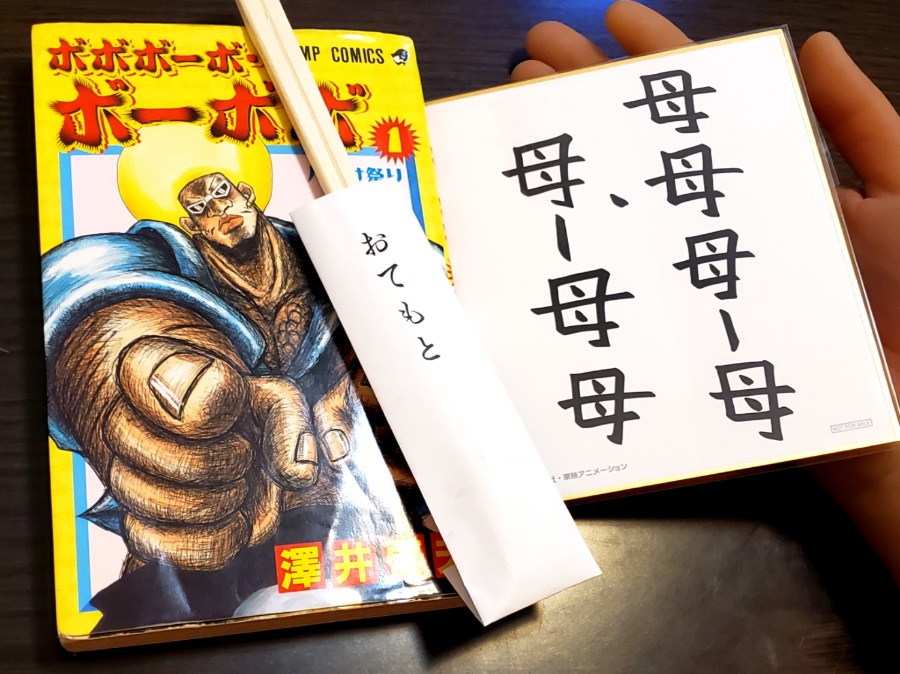 ボボボーボ・
MP COMICS
ボーボボ
1
祭り
澤井
おてもと
母母母ー母、
母ー母母
NOT FOR SALE
・東映アニメーション